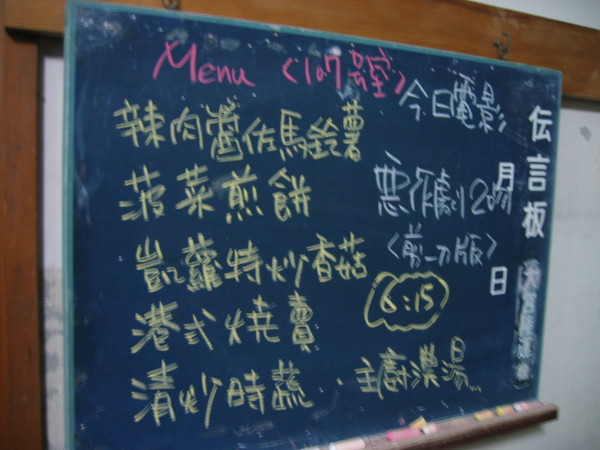 Menu (107室)
辣肉醬佐馬鈴薯
菠菜煎餅
凱蘿特炒香菇
港式燒賣
清炒時蔬・主廚濃湯...
今日電影
惡作劇2吻
<剪一刀版>
6:15
伝言板
月
日